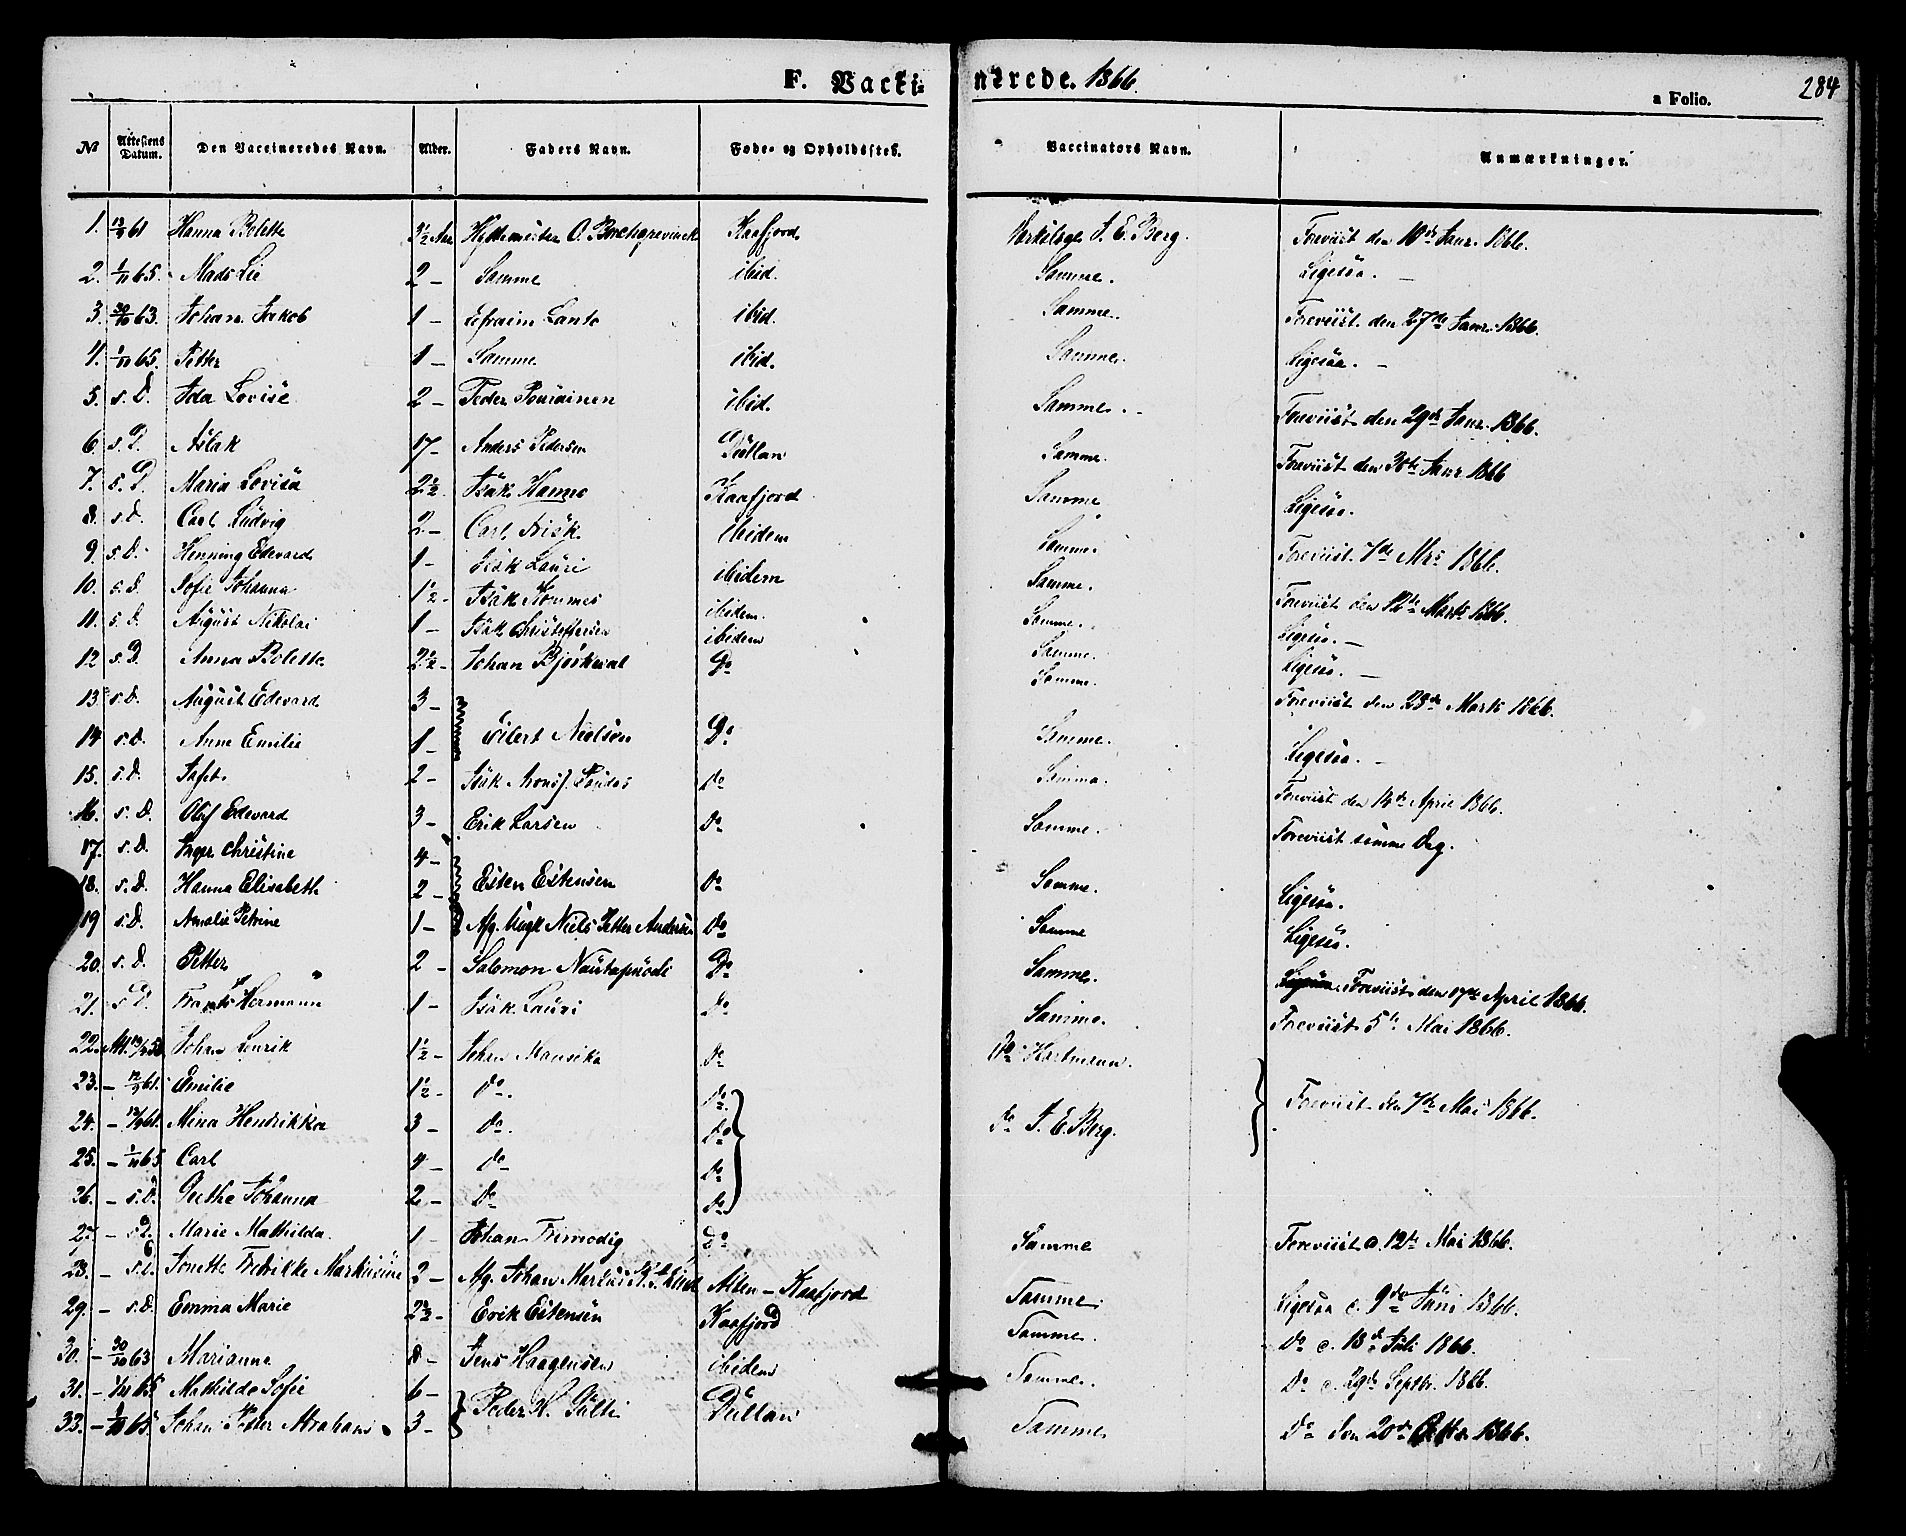 F. Vacki=nerede. 1866.
a Folio. 284
No | Attestens Datum. | Den Vaccineredes Navn. | Alder. | Faders Navn. | Føde- og Opholdssted. | Vaccinators Navn. | Anmærkninger.
1. 13/9 61 Hanna Bolette 3½ Aar Hyttemester O. Borchgrevinck Kaafjord J. E. Berg. Foreviist den 10de Janr. 1866.
2. 1/11 65. Mads Lie 2 – Samme ibid. Samme. Ligesaa. –
3. 30/10 63. Johan Jakob 1 – Efraim Lanto ibid. Samme. Foreviist den 27de Janr. 1866.
4. 1/11 65. Petter 1 – Samme ibid. Samme. Ligesaa. –
5. s. D. Ida Lovise 2 – Peder ibid. Samme. Foreviist den 29de Janr. 1866.
6. s. D. Aslak 17 – Anders Pedersen Samme. Foreviist den 30te Janr. 1866
7. s. D. Maria Lovisa 2½ Isak Kaafjord Samme Ligesaa.
8. s. D. Carl Ludvig 2 – Carl Frisk ibidem Samme. Foreviist 7de Mrs 1866.
9. s. D. Henning Edevard 1 – Isak Lauri ibidem Samme. Foreviist den 12te Marts 1866.
10. s. D. Sofie Johanna 1½ – Isak ibidem. Samme. Ligesaa. –
11. s. D. August Nikolai 1 – Isak Christoffersen ibidem Samme. Ligesaa. –
12 s. D. Anna Bolette 2½ – Johan Do Samme. Foreviist den 23de Marts 1866.
13. s. D. August Edevard 3 –
14 s. D. Anne Emilie 1 – Eilert Nielsen Do Samme. Ligesaa. –
15. s. D. Isak Do Samme. Foreviist den 14de April 1866.
16. s. D. Oluf Edevard 3 – Erik Larsen Do Samme. Foreviist samme Dag.
17. s. D. Inger Christine 4 –
18. s. D. Hanna Elisabeth 2 – Esten Estensen Do Samme. Ligesaa.
19 s. D. Amalie Petrine 1 – Afg. Ungk Niels Petter Andersen Do Samme Ligesaa.
20. s. D. Petter 2 – Salomon Do Samme. Foreviist den 17de April 1866.
21. s. D. Frants Hermann 1 – Isak Lauri Do Samme. Foreviist 5te Mai 1866.
22. Johan Henrik 1½ – Johan Do Do Hartmann.
23. – 12/9 61. Emilie 1½ – Do. Do
24. – 12/9 61. Mina Hendrikka 3 – Do. Do do J. E. Berg. Foreviist den 7de Mai 1866.
25. – 1/11 65 Carl 4 – Do Do
26. – s. D. Grethe Johanna 2 – Do Do
27. – s. D. Marie Mathilda. 1 – Johan Frimodig Do Samme Foreviist d. 12te Mai 1866.
28. – s. D. Jonette Fredrikke 2 – Afg. Johan Markus Alten – Kaafjord Samme. Ligesaa d. 9de Juni 1866.
29. – s. D. Emma Marie 2½ – Erik Estensen Kaafjord Samme. Do d. 18de Juli 1866.
30. – 30/10 63 Marianne 8 – Jens Haagensen ibidem Samme. Do d. 29de Septbr. 1866.
31. – 1/11 65 Mathilde Sofie 6 –
32. – 1/11 65. Johan Peter Abraham 3 – Peder H. Samme Do den 20de 1866.